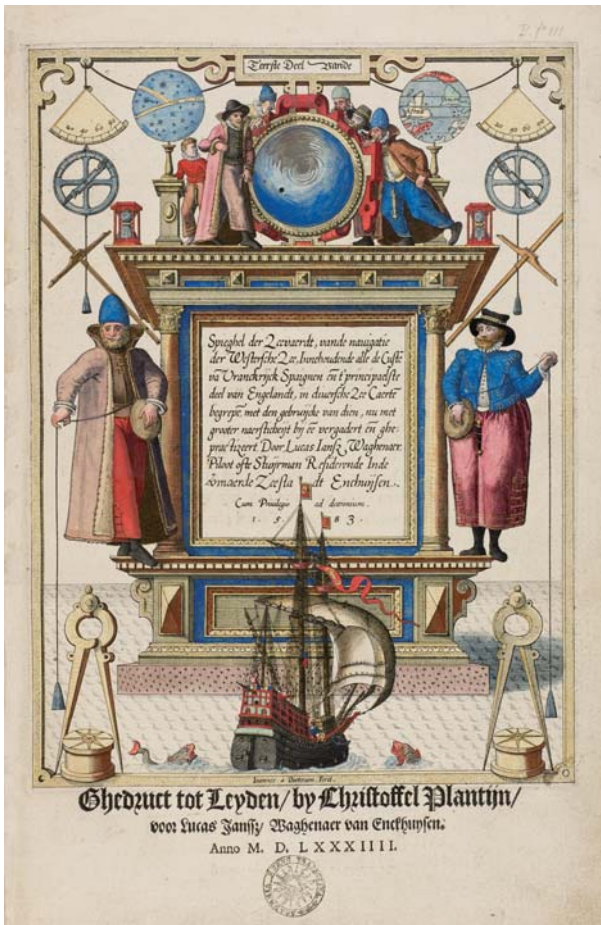 Eerste Deel Vande
Spieghel der Zeevaerdt, vande navigatie
der Westersche Zee, Innehoudende alle de Custē
vā Vranckrijck Spaignen eñ t'principaelste
deel van Engelandt, in diversche Zee Caertē
begrepē, met den gebruijcke van dien, nu met
grooter naersticheijt bij eē vergadert eñ ghe-
practizeert Door Lucas Iansz Waghenaer
Piloot ofte Stuijrman Residerende Inde
vermaerde Zeestadt Enchuijsen.
Cum Priuilegio ad decennium.
1 5 8 3.
20 40 60 80
20 40 60 80
Ioannes a Doetecum Fecit.
Ghedruct tot Leyden/ by Christoffel Plantijn/
voor Lucas Janssz/ Waghenaer van Enckhuysen.
Anno M. D. LXXXIIII.